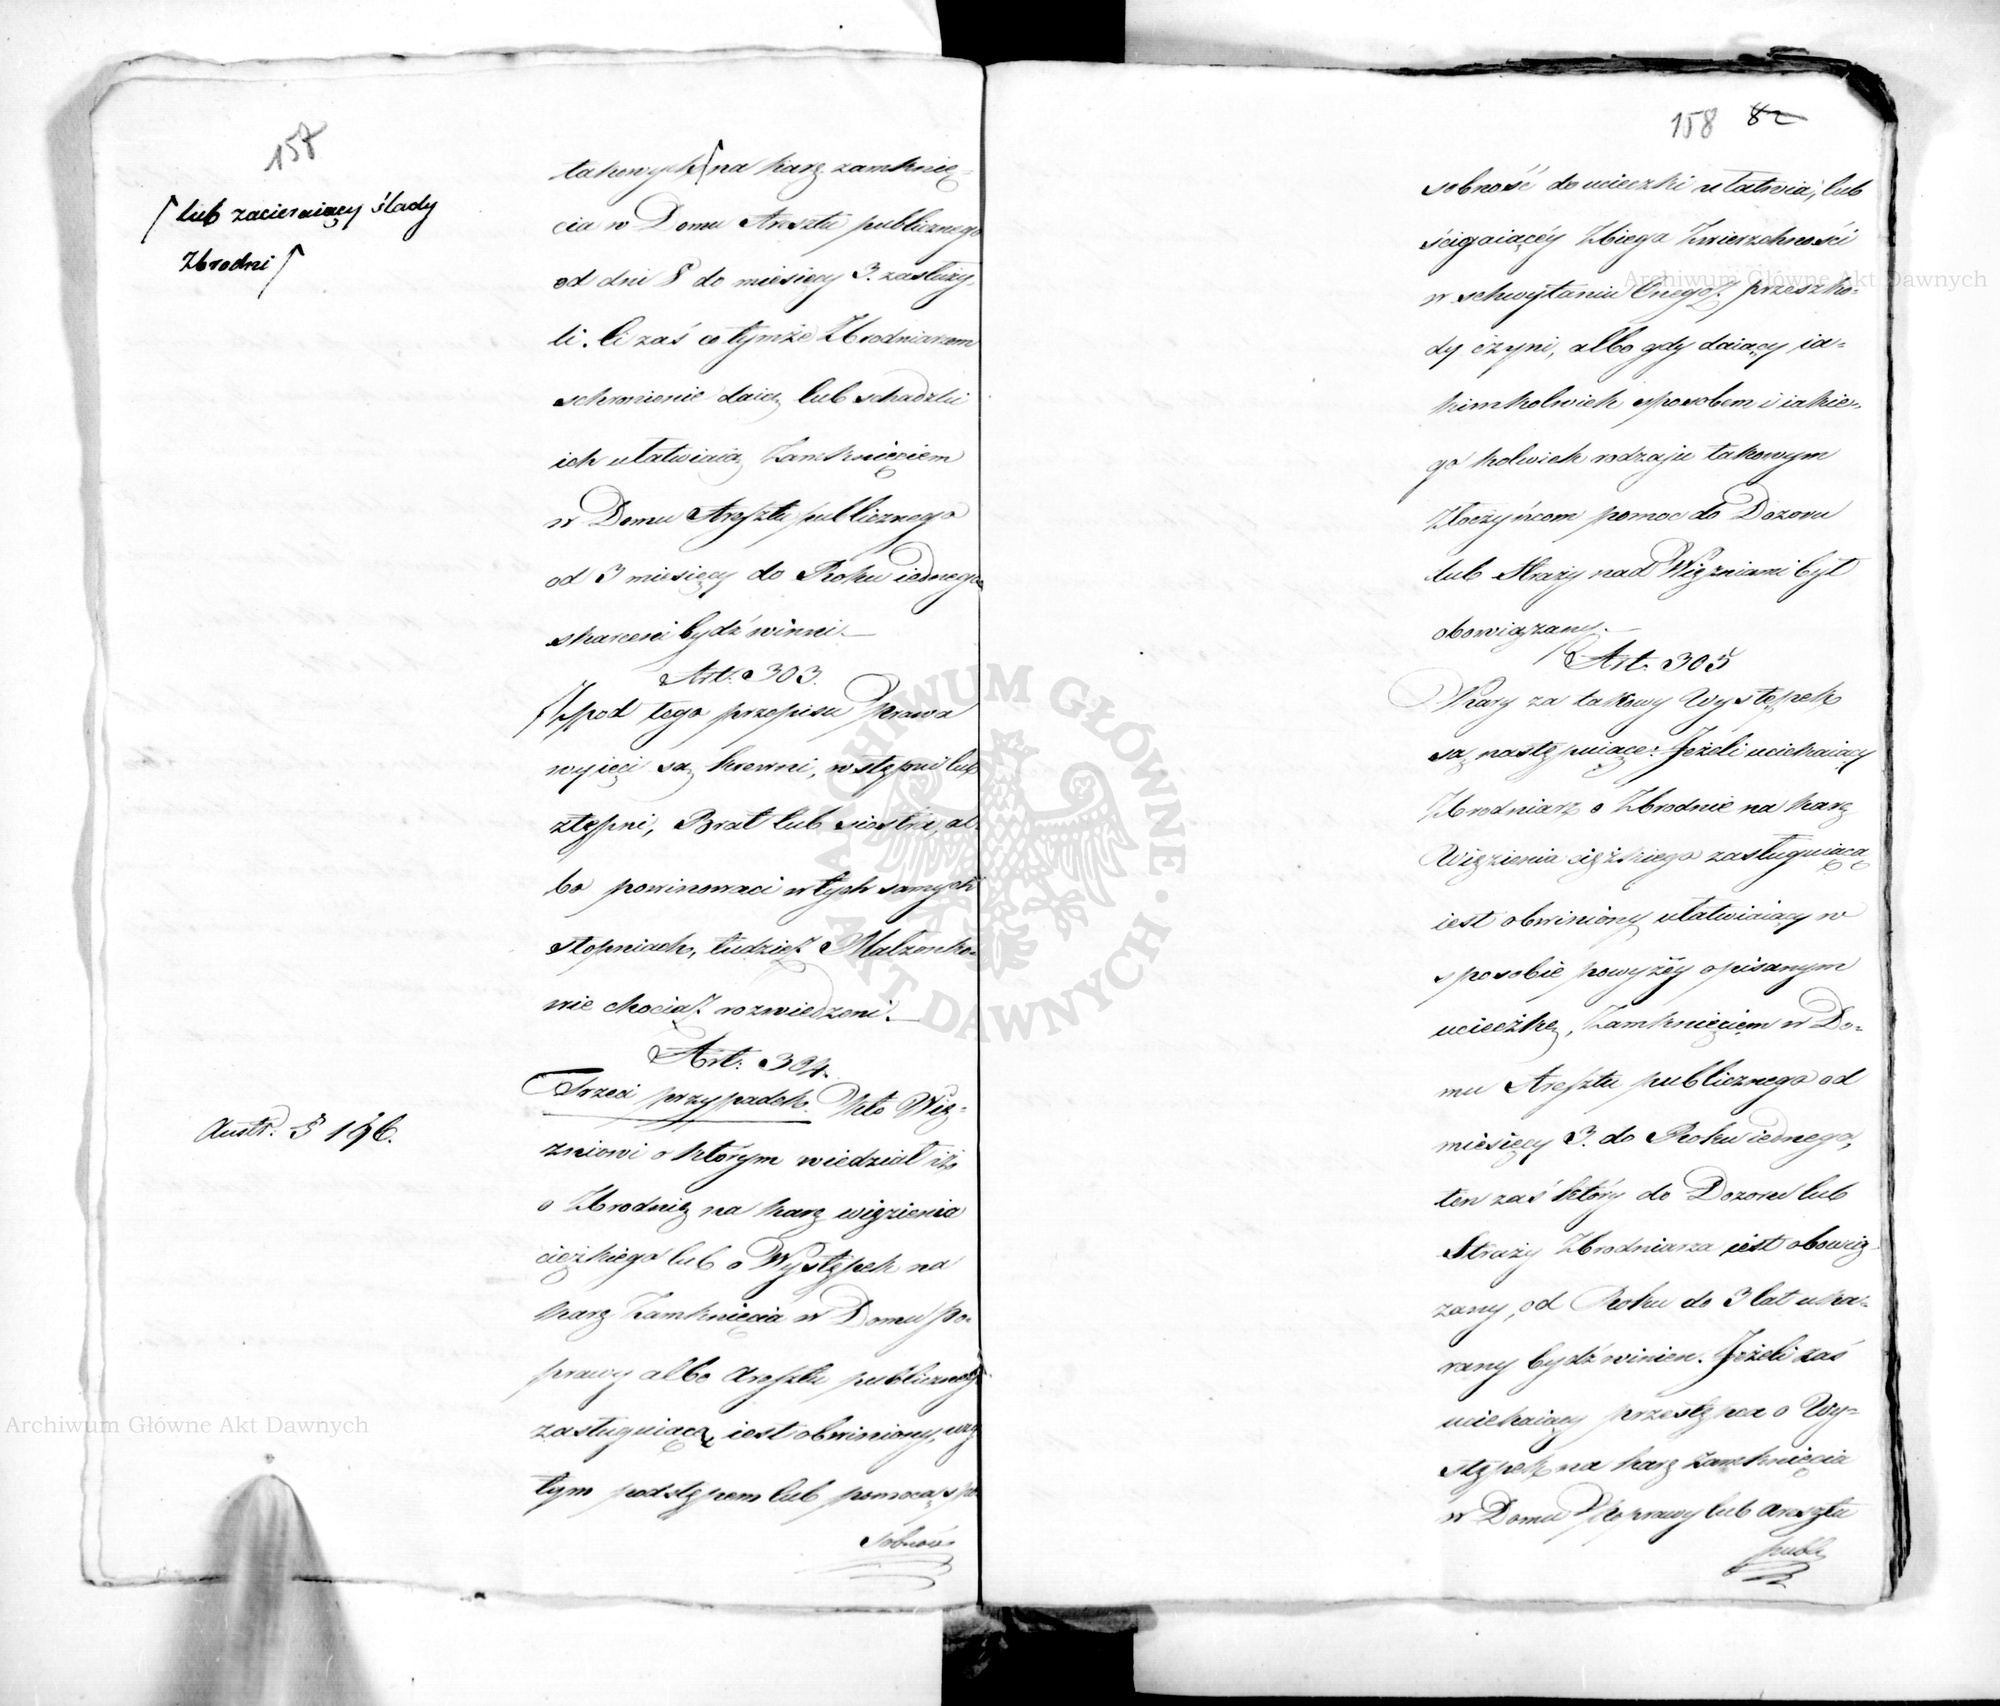 158
⌈ lub zacieraiący ślady
Zbrodni ⌉
takowych ⌈ na karę zamknię-
cia w Domu Aresztu publicznego
od dni 8 do miesięcy 3. zasłuży-
li. Ci zaś co tymże Zbrodniarzom
schronienie daią lub schadzki
ich ułatwiaią Zamknięciem
w Domu Aresztu publicznego
od 3 miesięcy do Roku iednego
skarceni bydź winni.
Art. 303.
Zpod tego przepisu Prawa
wyięci są krewni, wstępni lub
zstępni, Brat lub siostra, al-
bo powinowaci w tych samych
stopniach, tudzież Małżonko-
wie chociaż rozwiedzeni.
Art: 304.
Austr: § 196.
Trzeci przypadek. Kto Wię-
zniowi o którym wiedział iż
o Zbrodnię na karę więzienia
ciężkiego lub o Występek na
karę Zamknięcia w Domu Po-
prawy albo Aresztu publicznego
zasługuiącą iest obwiniony, czy
tym podstępem lub pomocą spo-
sobność
158 82
sobność do ucieczki ułatwia, lub
ścigaiącéy Zbiega Zwierzchności
w schwytaniu Onegoż przeszko-
dy czyni, albo gdy daiący ia-
kimkolwiek sposobem i iakie-
go kolwiek rodzaju takowym
Złoczyńcom pomoc do Dozoru
lub Straży nad Więzniami był
obowiązany.
Art: 305
Kary za takowy Występek
są następuiące: Jeżeli uciekaiący
Zbrodniarz o Zbrodnie na karę
Więzienia ciężkiego zasługuiącą
iest obwiniony ułatwiaiący w
sposobie powyżéy opisanym
ucieczkę, Zamknięciem w Do-
mu Aresztu publicznego od
miesięcy 3. do Roku iednego,
ten zaś który do Dozoru lub
Straży Zbrodniarza iest obowią-
zany, od Roku do 3 lat uka-
rany bydź winien. Jeżeli zaś
uciekaiący przestępca o Wy-
stępek na karę Zamknięcia
w Domu Poprawy lub Aresztu
publi
Archiwum Główne Akt Dawnych
Archiwum Główne Akt Dawnych
ARCHIWUM GŁÓWNE AKT DAWNYCH